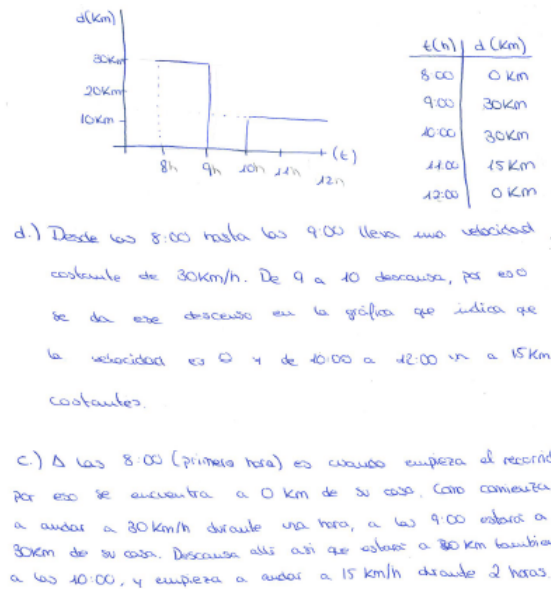 d(Km)
30Km
20Km
10Km
8h 9h 10h 11h 12h
(t)
t(h) d(Km)
8:00 0 Km
9:00 30Km
10:00 30Km
11:00 15Km
12:00 0 Km
d.) Desde las 8:00 hasta las 9:00 lleva una velocidad
costante de 30Km/h. De 9 a 10 descansa, por eso
se da ese descenso en la gráfica que indica que
la velocidad es 0 y de 10:00 a 12:00 va a 15 Km
costantes.
c.) A las 8:00 (primera hora) es cuando empieza el recorrid
por eso se encuentra a 0 km de su casa. Como comienza
a andar a 30 km/h durante una hora, a las 9:00 estará a
30Km de su casa. Descansa allí asi que estará a 30 Km tambien
a las 10:00, y empieza a andar a 15 km/h durante 2 horas.